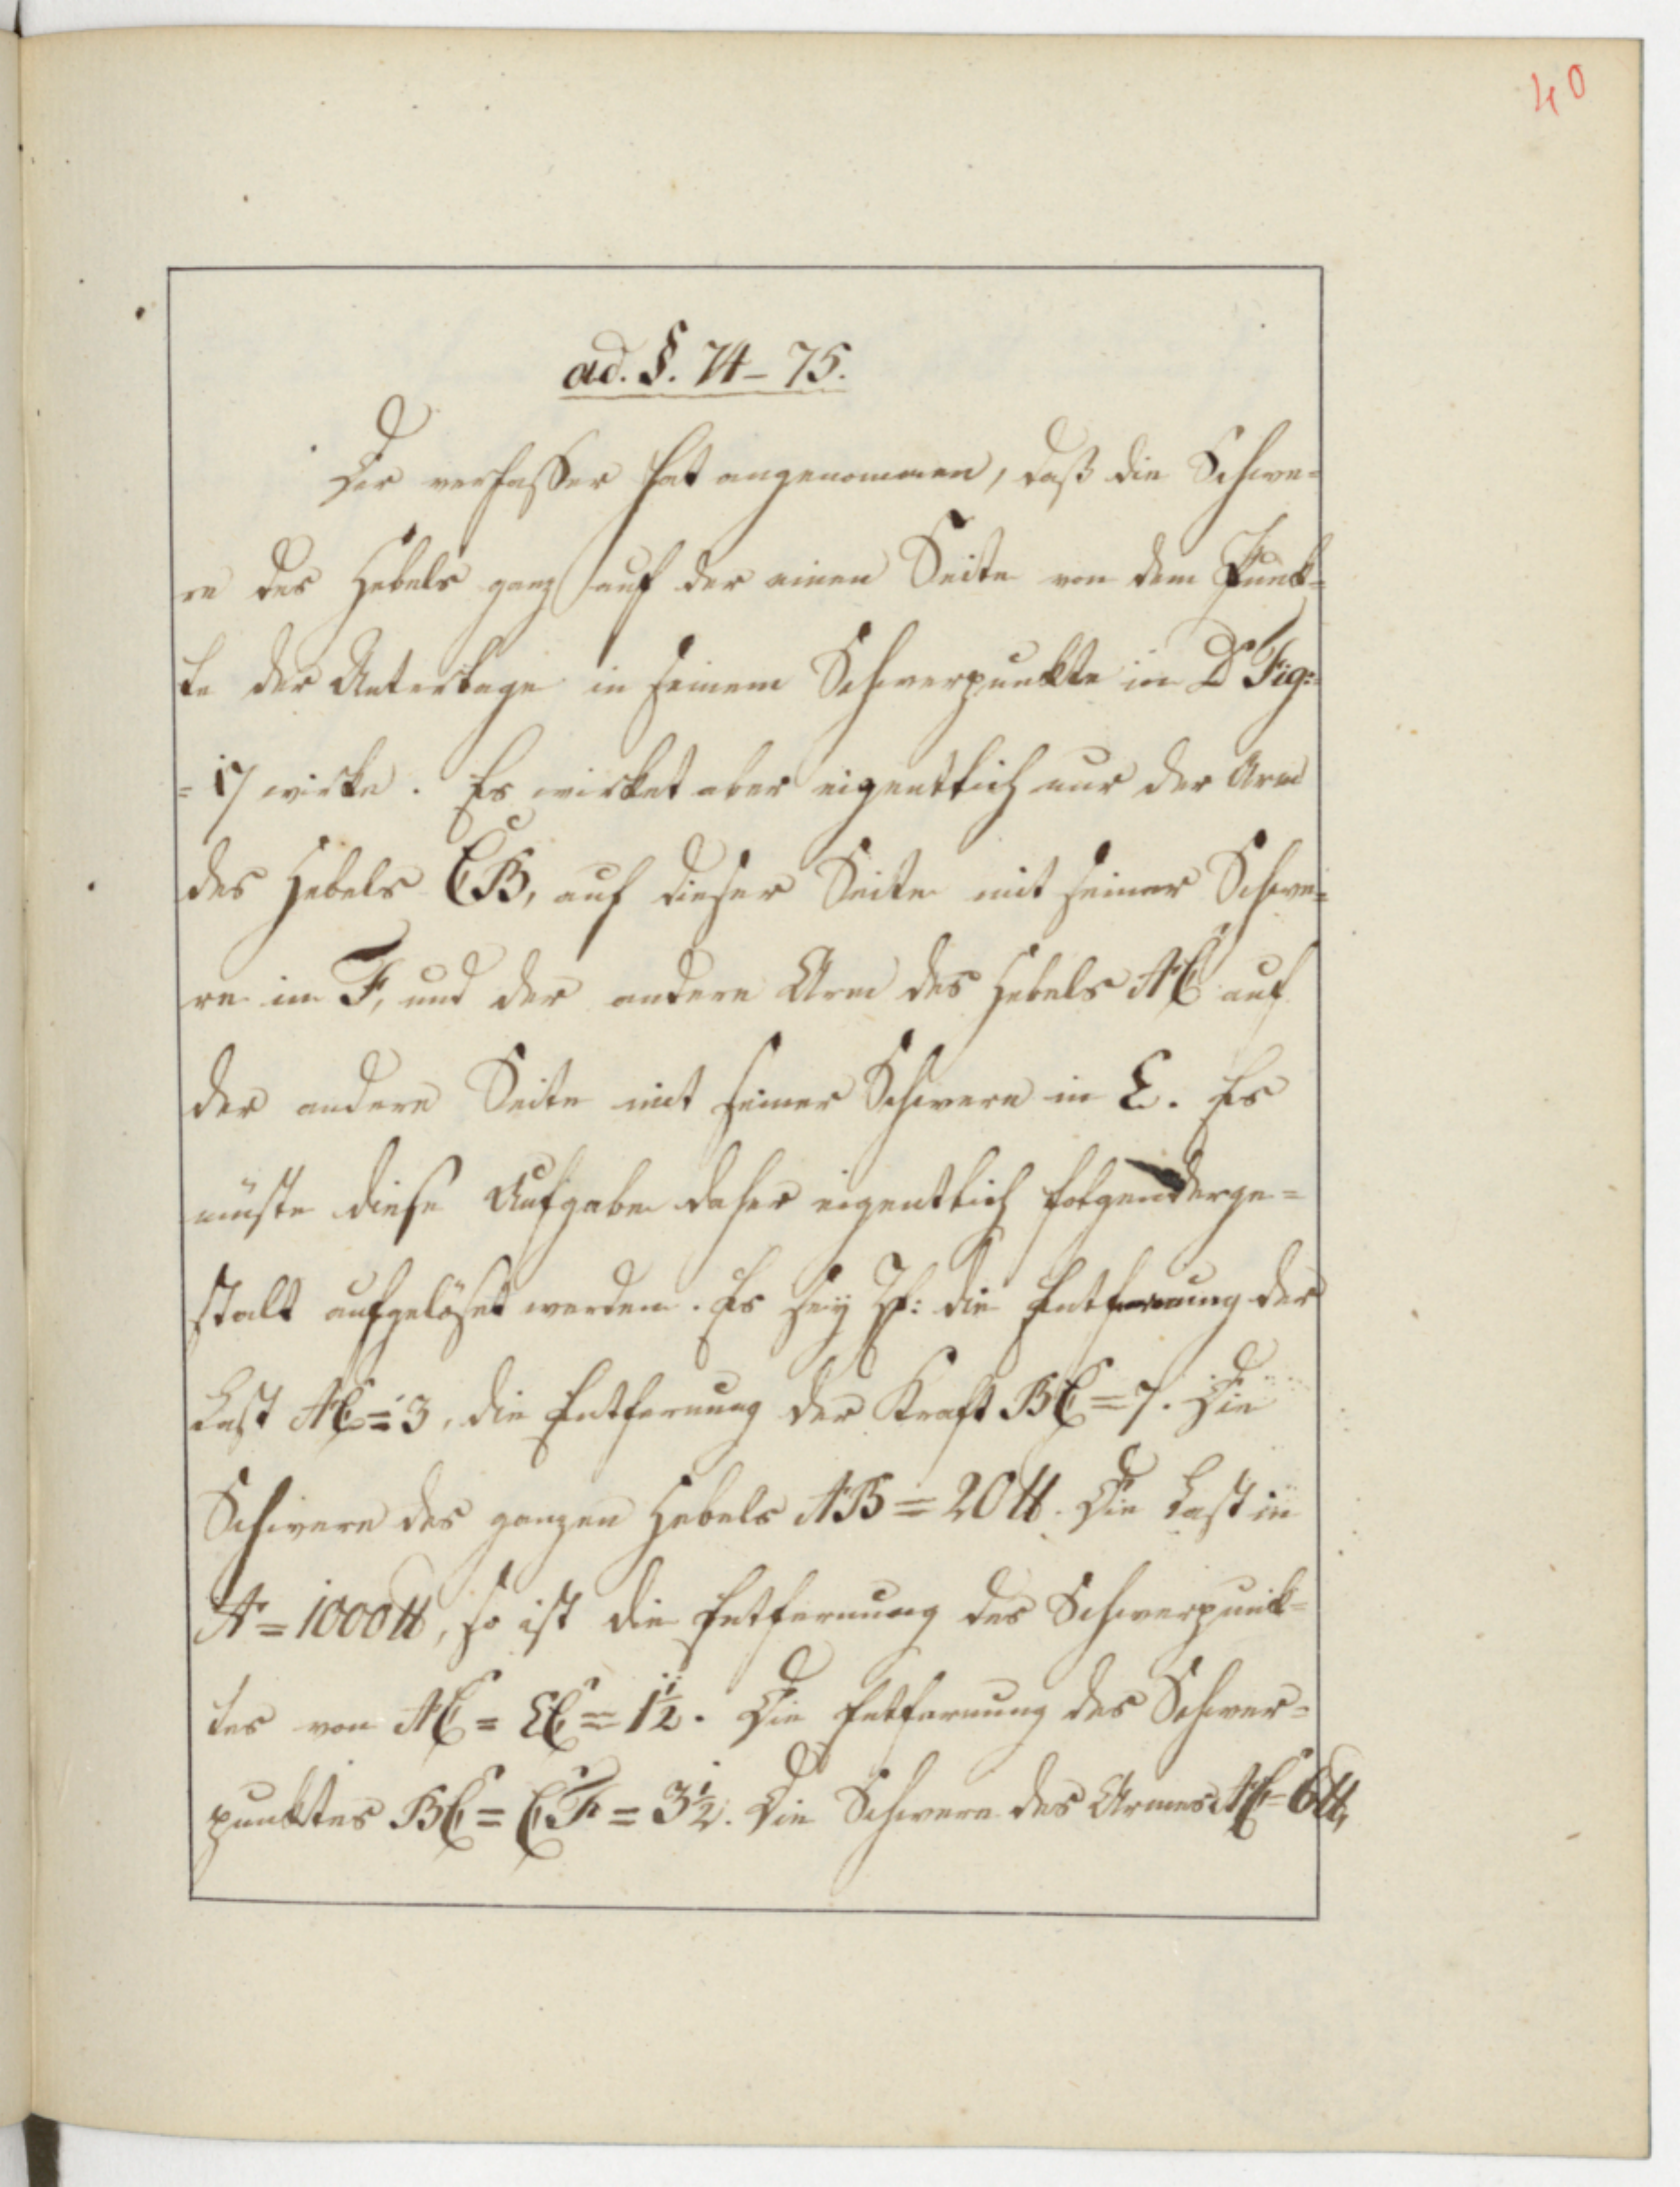 40
ad. §. 74-75.
Der verfasser hat angenommen, daß die Schwe=
re des Hebels ganz auf der einen Seite von dem Punk=
te der Unterlage in seinem Schwerpunkte in D Fig:
= 17 wirke. Es wirket aber eigentlich nur der Arm
des Hebels CB, auf dieser Seite mit seiner Schwe=
re in F, und der andere Arm des Hebels AC auf
der andern Seite mit seiner Schwere in E. Es
müste diese Aufgabe daher eigentlich folgenderge=
stalt aufgelöset werden. Es sey die Entfernung der
Last AC = 3, die Entfernung der Kraft BC = 7. Die
Schwere des ganzen Hebels AB = 20 ℔. Die Last in
A = 1000 ℔, so ist die Entfernung des Schwerpunk=
tes von AC = EC = 1½. Die Entfernung des Schwer=
punktes BC = CF = 3½. Die Schwere des Armes AC = 6 ℔,